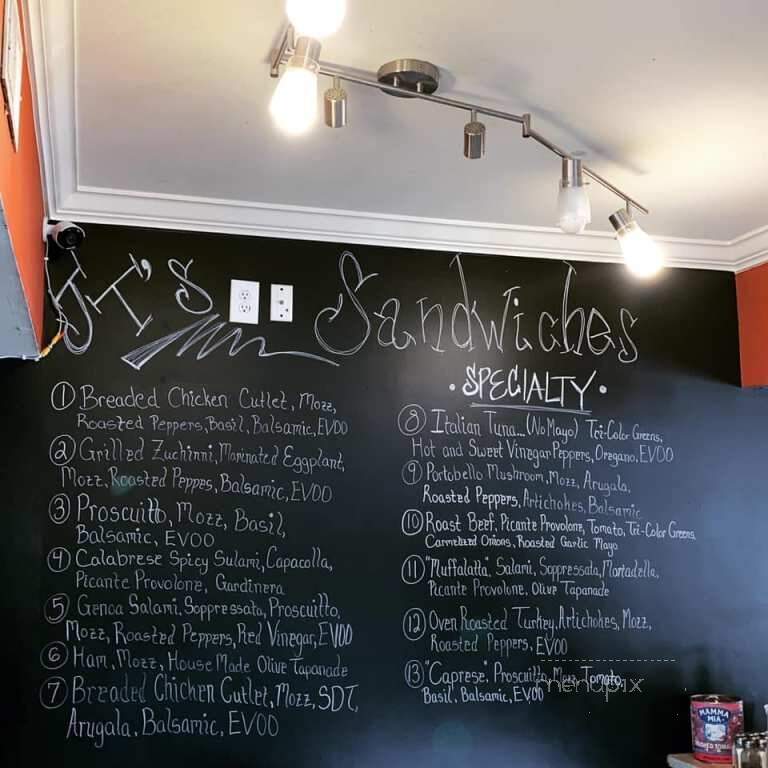 JT's Sandwiches
• SPECIALTY •
① Breaded Chicken Cutlet, Mozz,
Roasted Peppers, Basil, Balsamic, EVOO
② Grilled Zuchinni, Marinated Eggplant,
Mozz, Roasted Peppes, Balsamic, EVOO
③ Proscuitto, Mozz, Basil,
Balsamic, EVOO
④ Calabrese Spicy Sulami, Capacolla,
Picante Provolone, Gardinera
⑤ Genoa Salami, Soppressata, Proscuitto,
Mozz, Roasted Peppers, Red Vinegar, EVOO
⑥ Ham, Mozz, House Made Olive Tapanade
⑦ Breaded Chicken Cutlet, Mozz, SDT,
Arugala, Balsamic, EVOO
⑧ Italian Tuna... (No Mayo) Tri-Color Greens,
Hot and Sweet Vinegar Peppers, Oregano, EVOO
⑨ Portobello Mushroom, Mozz, Arugala,
Roasted Peppers, Artichokes, Balsamic
⑩ Roast Beef, Picante Provolone, Tomato, Tri-Color Greens,
Carmelized Onions, Roasted Garlic Mayo
⑪ "Muffalatta" Salami, Soppressata, Mortadella,
Picante Provolone, Olive Tapanade
⑫ Oven Roasted Turkey, Artichokes, Mozz,
Roasted Peppers, EVOO
⑬ "Caprese" Proscuitto, Mozz, Tomato,
Basil, Balsamic, EVOO
menupix
MAMMA
MIA